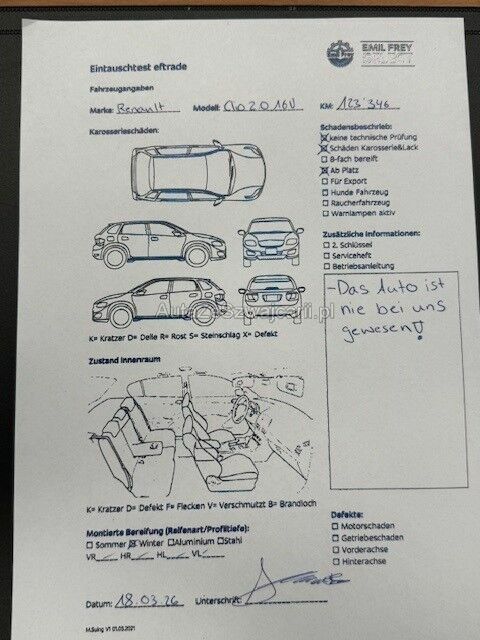 EMIL FREY
Eintauschtest eftrade
Fahrzeugangaben
Marke: Renault Modell: Clio 2.0 16V KM: 123'346
Karosserieschäden:
Schadensbeschrieb:
keine technische Prüfung
Schäden Karosserie&Lack
8-fach bereift
Ab Platz
Für Export
Hunde Fahrzeug
Raucherfahrzeug
Warnlampen aktiv
Zusätzliche Informationen:
2. Schlüssel
Serviceheft
Betriebsanleitung
-Das Auto ist
nie bei uns
gewesen!
AutazeSzwajcarii.pl
K= Kratzer D= Delle R= Rost S= Steinschlag X= Defekt
Zustand Innenraum
K= Kratzer D= Defekt F= Flecken V= Verschmutzt B= Brandloch
Montierte Bereifung (Reifenart/Profiltiefe):
Sommer Winter Aluminium Stahl
VR HR HL VL
Defekte:
Motorschaden
Getriebeschaden
Vorderachse
Hinterachse
Datum: 18.03.26 Unterschrift:
M.Suing V1 01.03.2021